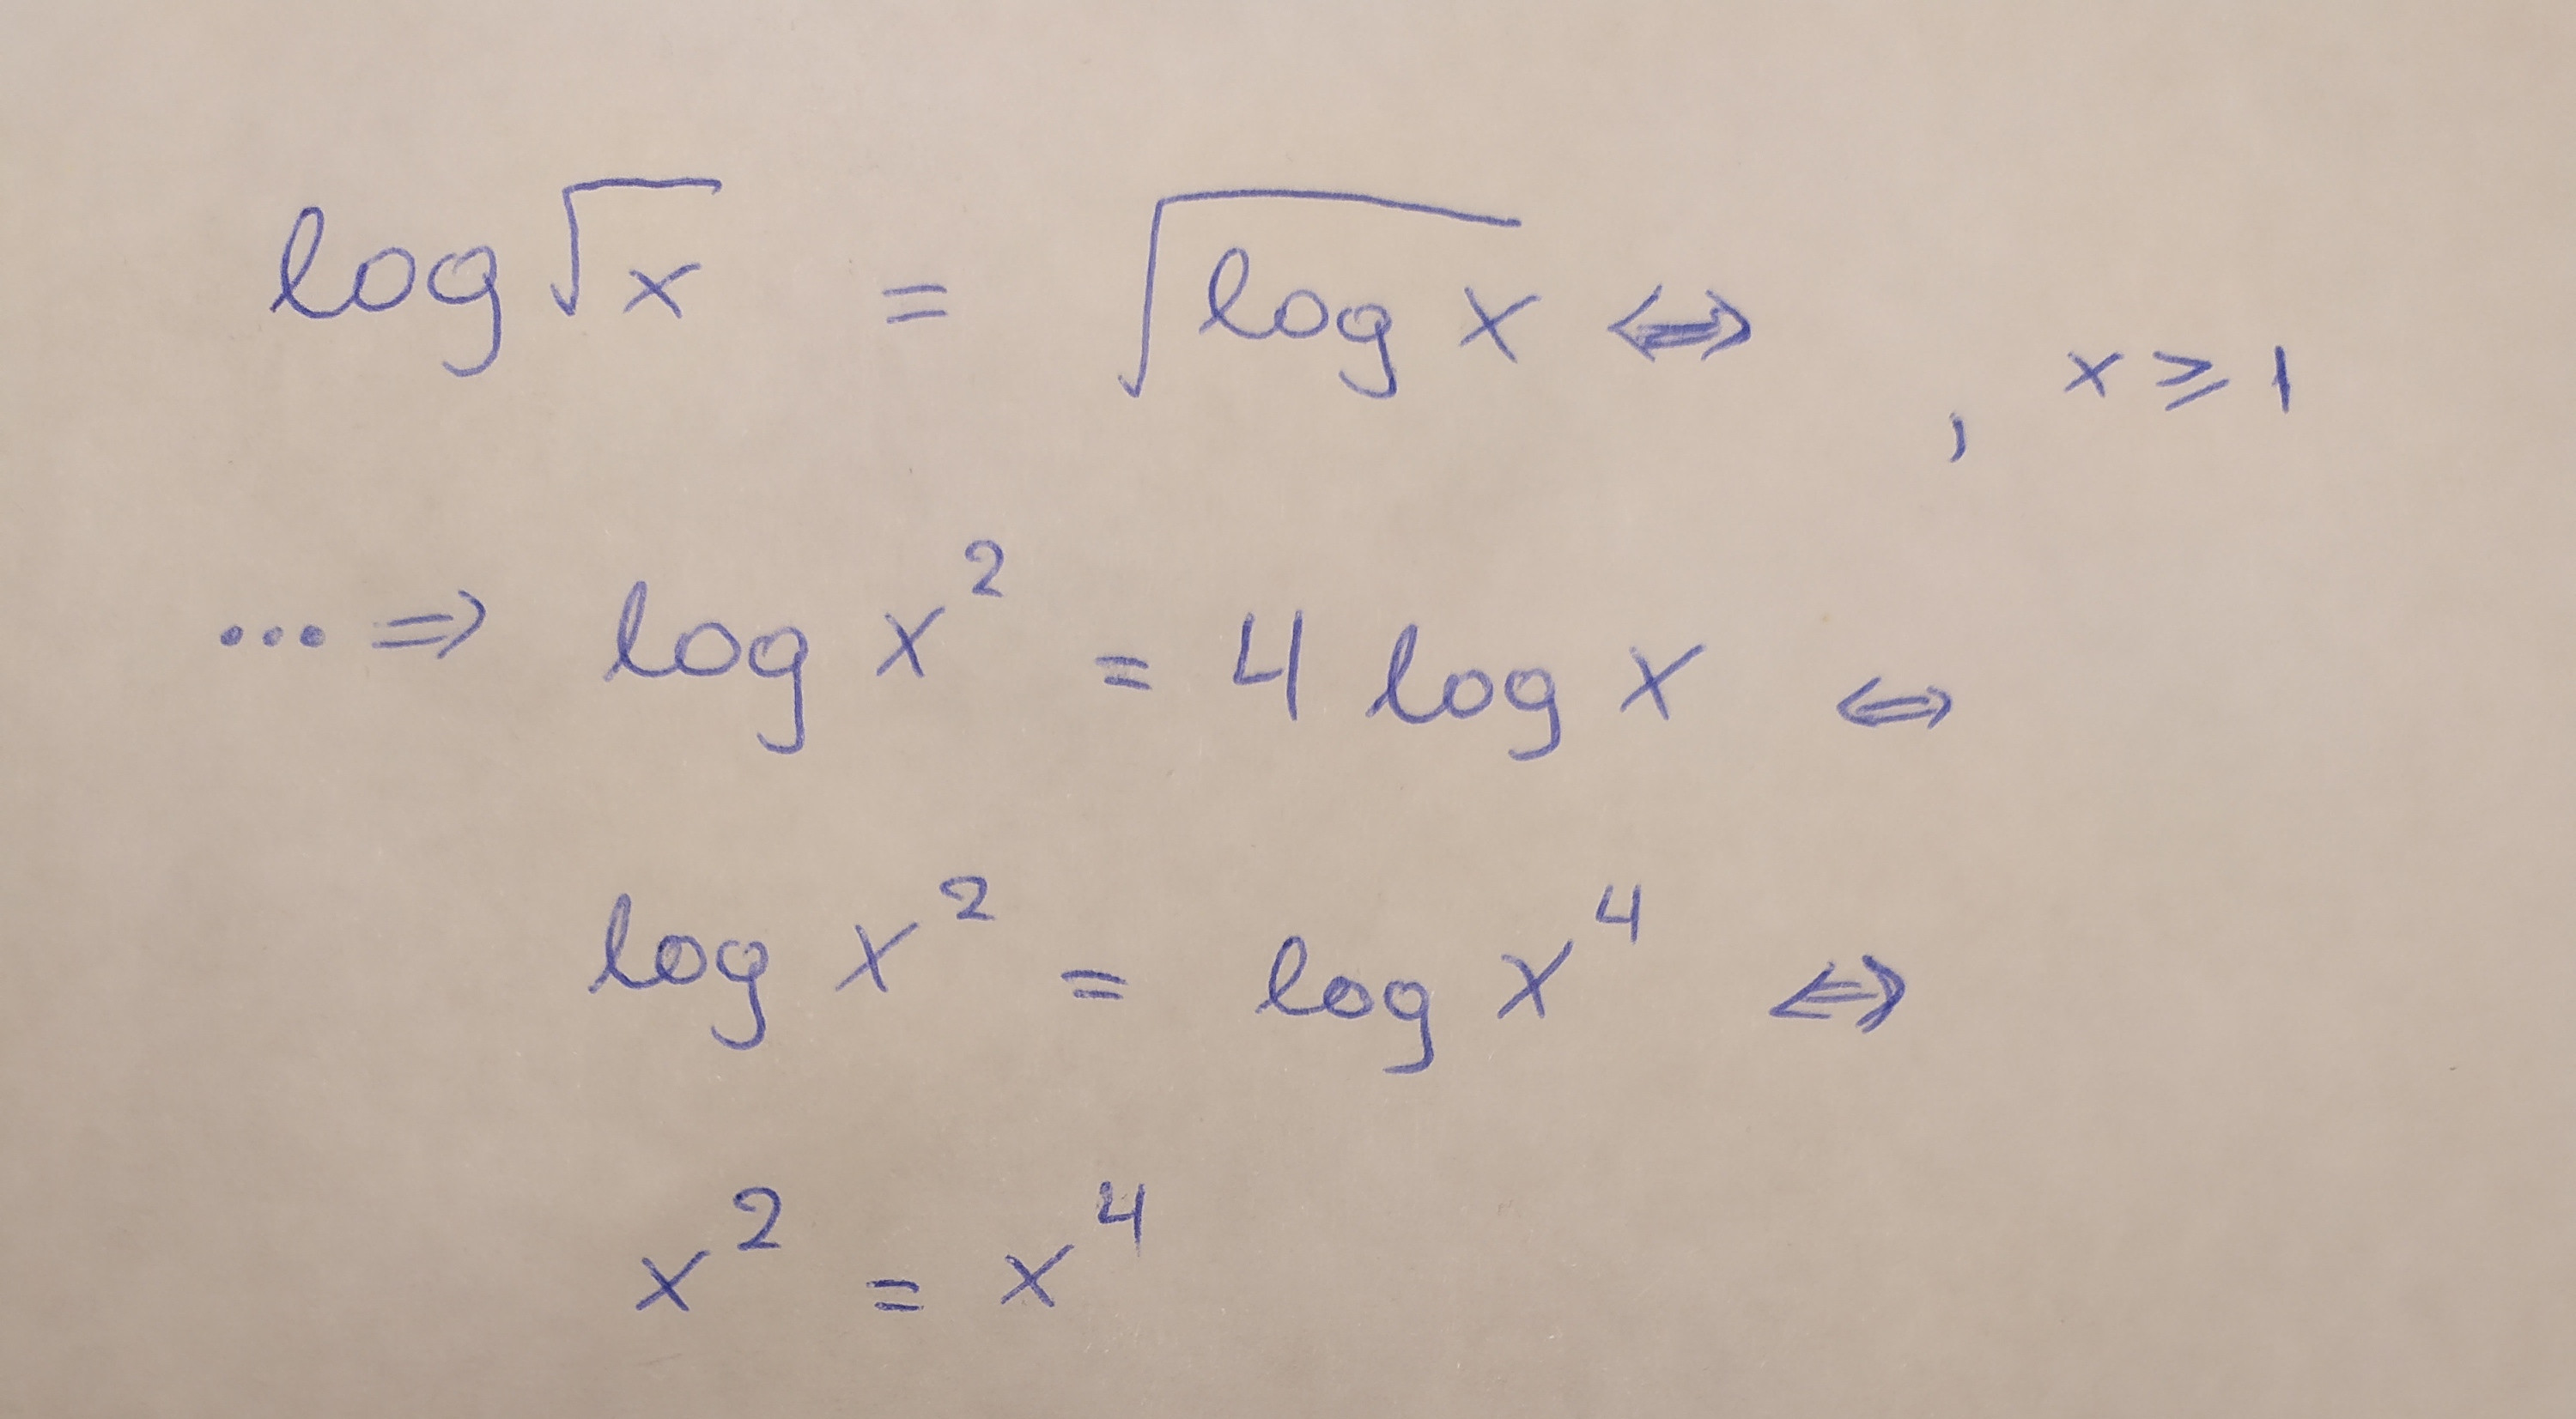 log √x = √(log x) ⇔ , x ⩾ 1
... ⇒ log x² = 4 log x ⇔
log x² = log x⁴ ⇔
x² = x⁴